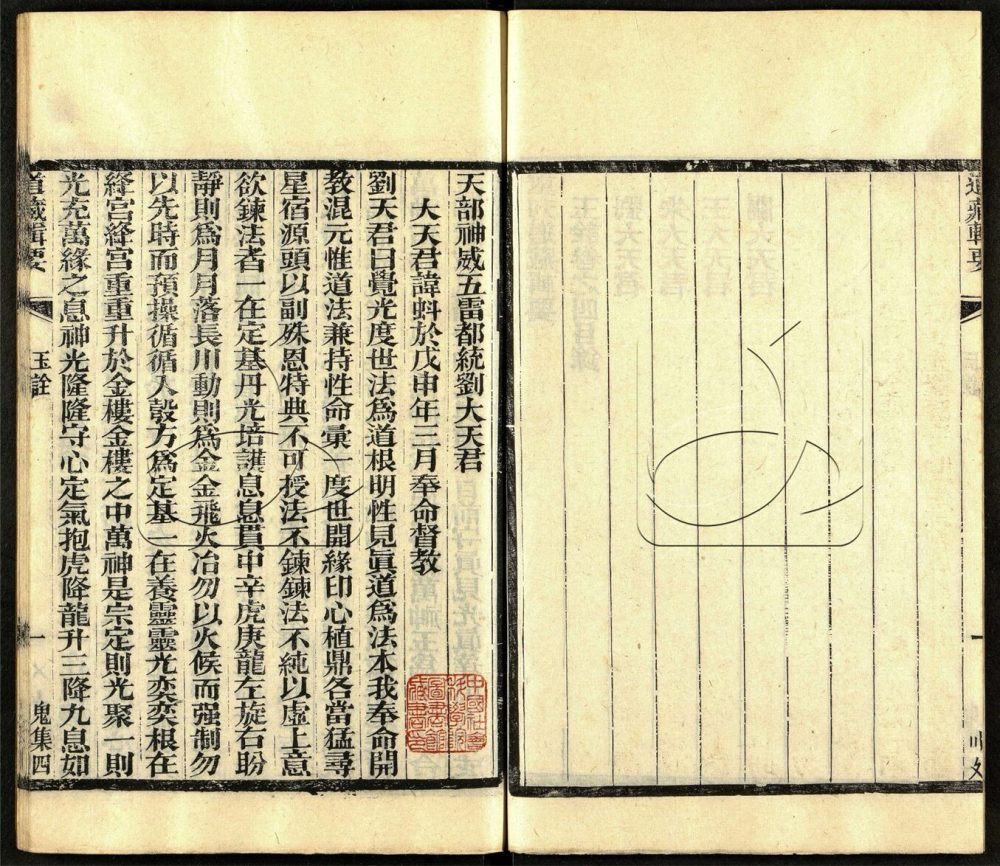 道藏輯要
天部神威五雷都統劉大天君
大天君諱蚪於戊申年三月奉命督教
劉天君曰覺光度世法爲道根明性見眞道爲法本我奉命開
教混元惟道法兼持性命彙一度世開緣印心植鼎各當猛尋
星宿源頭以副殊恩特典不可授法不鍊鍊法不純以虛上意
欲鍊法者一在定基丹光培護息息貫中辛虎庚龍左旋右盼
靜則爲月月落長川動則爲金金飛火冶勿以火候而强制勿
以先時而預操循循入彀方爲定基一在養靈靈光奕奕根在
絳宮絳宮重重升於金樓金樓之中萬神是宗定則光聚一則
光充萬緣之息神光隆隆守心定氣抱虎降龍升三降九息如
道藏輯要 玉詮 一 鬼集四